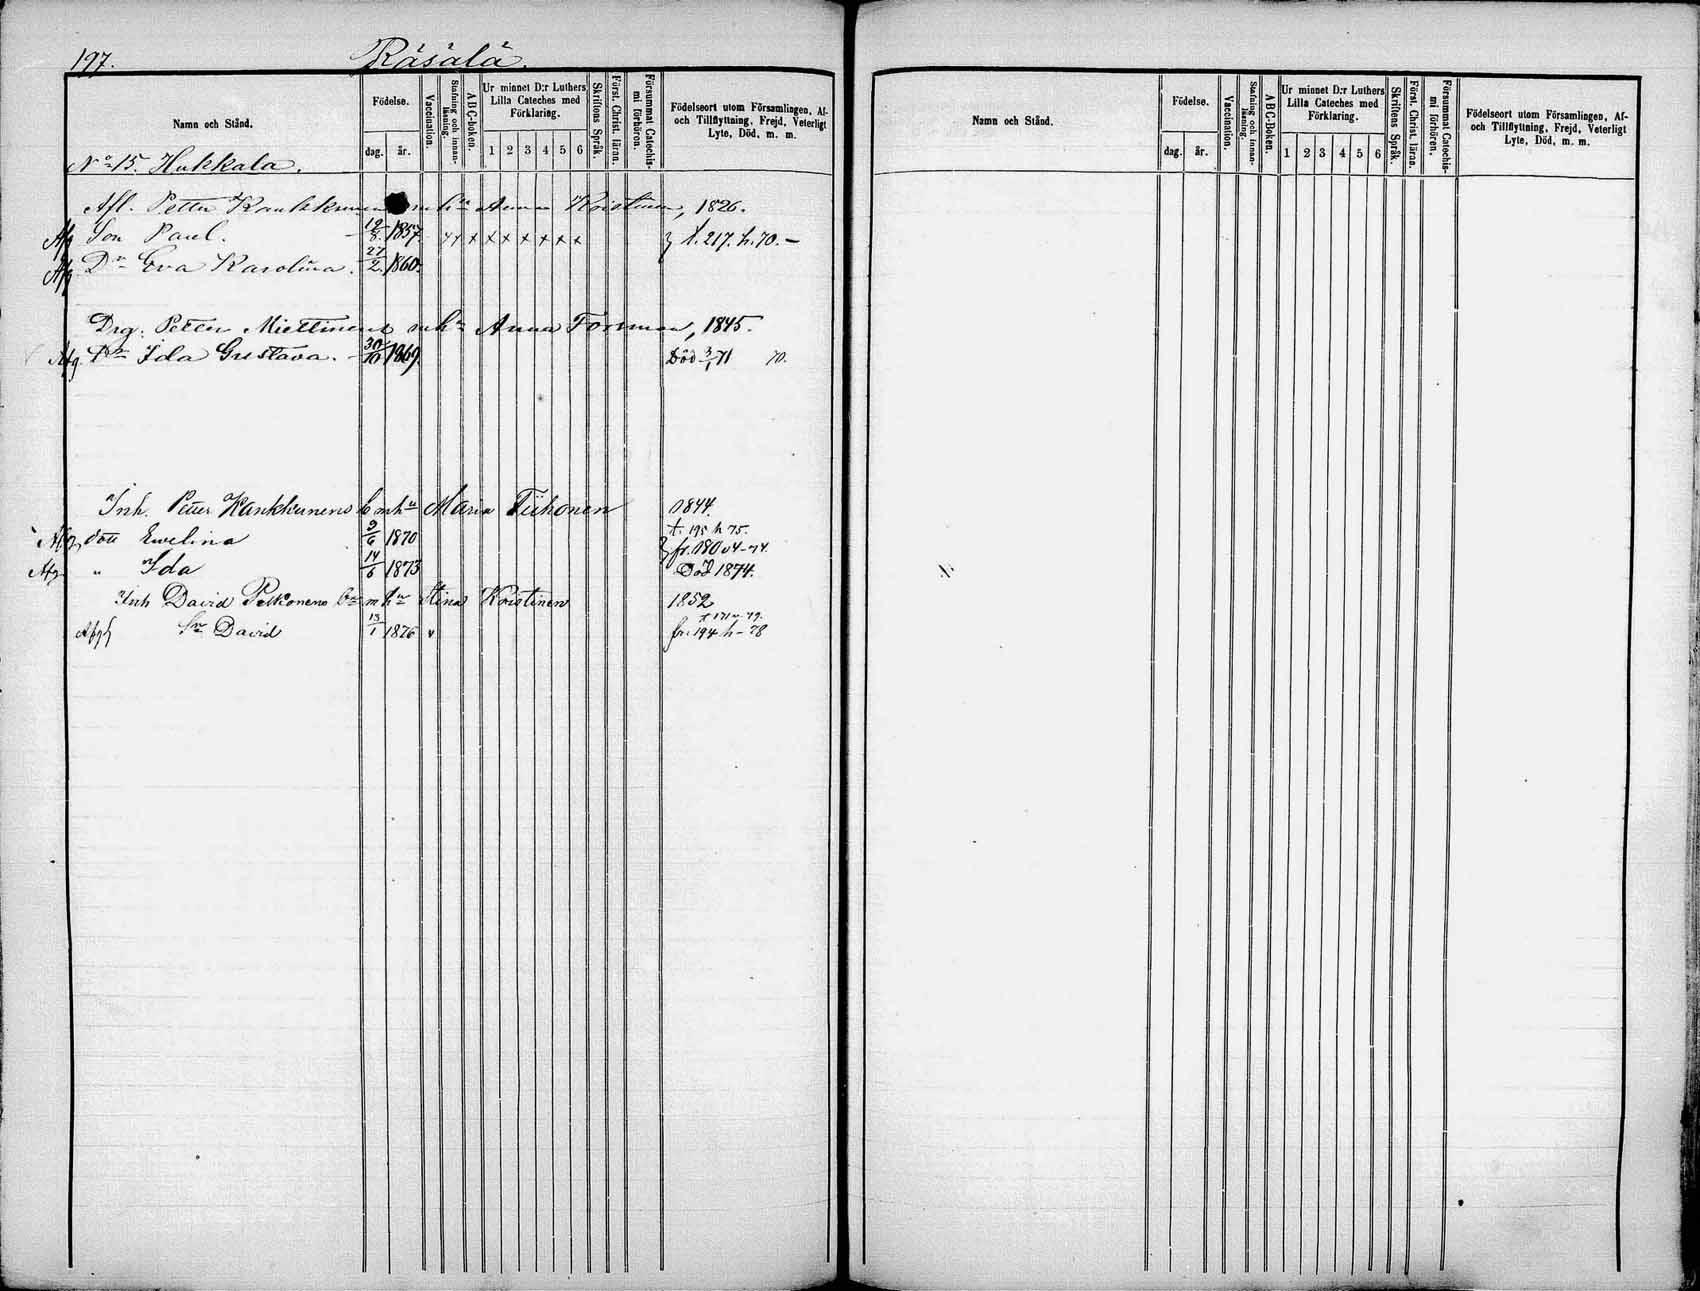 197. Räsälä.
Namn och Stånd.
Födelse.
dag. år.
Vaccination.
Stafning och innanläsning.
ABC-boken.
Ur minnet D:r Luthers Lilla Cateches med Förklaring.
1 2 3 4 5 6
Skriftens Språk.
Först. Christ. läran.
Försummat Catechismi förhören.
Födelseort utom Församlingen, Af- och Tillflyttning, Frejd, Veterligt Lyte, Död, m. m.
No 15. Hukkala.
Afl. Petter Kankkunens mhu Anna Koistinen, 1826.
Afg Son Paul. 12/8. 1857. x x x x x x x x } t. 217. h. 70. –
Afg Dr Eva Karolina. 27/2. 1860.
Drg. Petter Miettinens mhu Anna Torman, 1845.
Afg. Dr Ida Gustava. 30/10 1869. Död 3/1 71 70.
Inh. Petter Kankkunens b mhu Maria Tiihonen 1844.
Afg dott Ewelina 9/6 1870 t. 195 h 75.
} fr. 180 v 4-74.
Afg " Ida 14/6 1873 Död 1874.
Inh David Pelkonens bn m hu Stina Koistinen 1852
t 171 v. 79.
Afg Sn David 13/1 1876 v fr. 194 h – 78
Namn och Stånd.
Födelse.
dag. år.
Vaccination.
Stafning och innanläsning.
ABC-Boken.
Ur minnet D:r Luthers Lilla Cateches med Förklaring.
1 2 3 4 5 6
Skriftens Språk.
Först. Christ. läran.
Försummat Catechismi förhören.
Födelseort utom Församlingen, Af- och Tillflyttning, Frejd, Veterligt Lyte, Död, m. m.